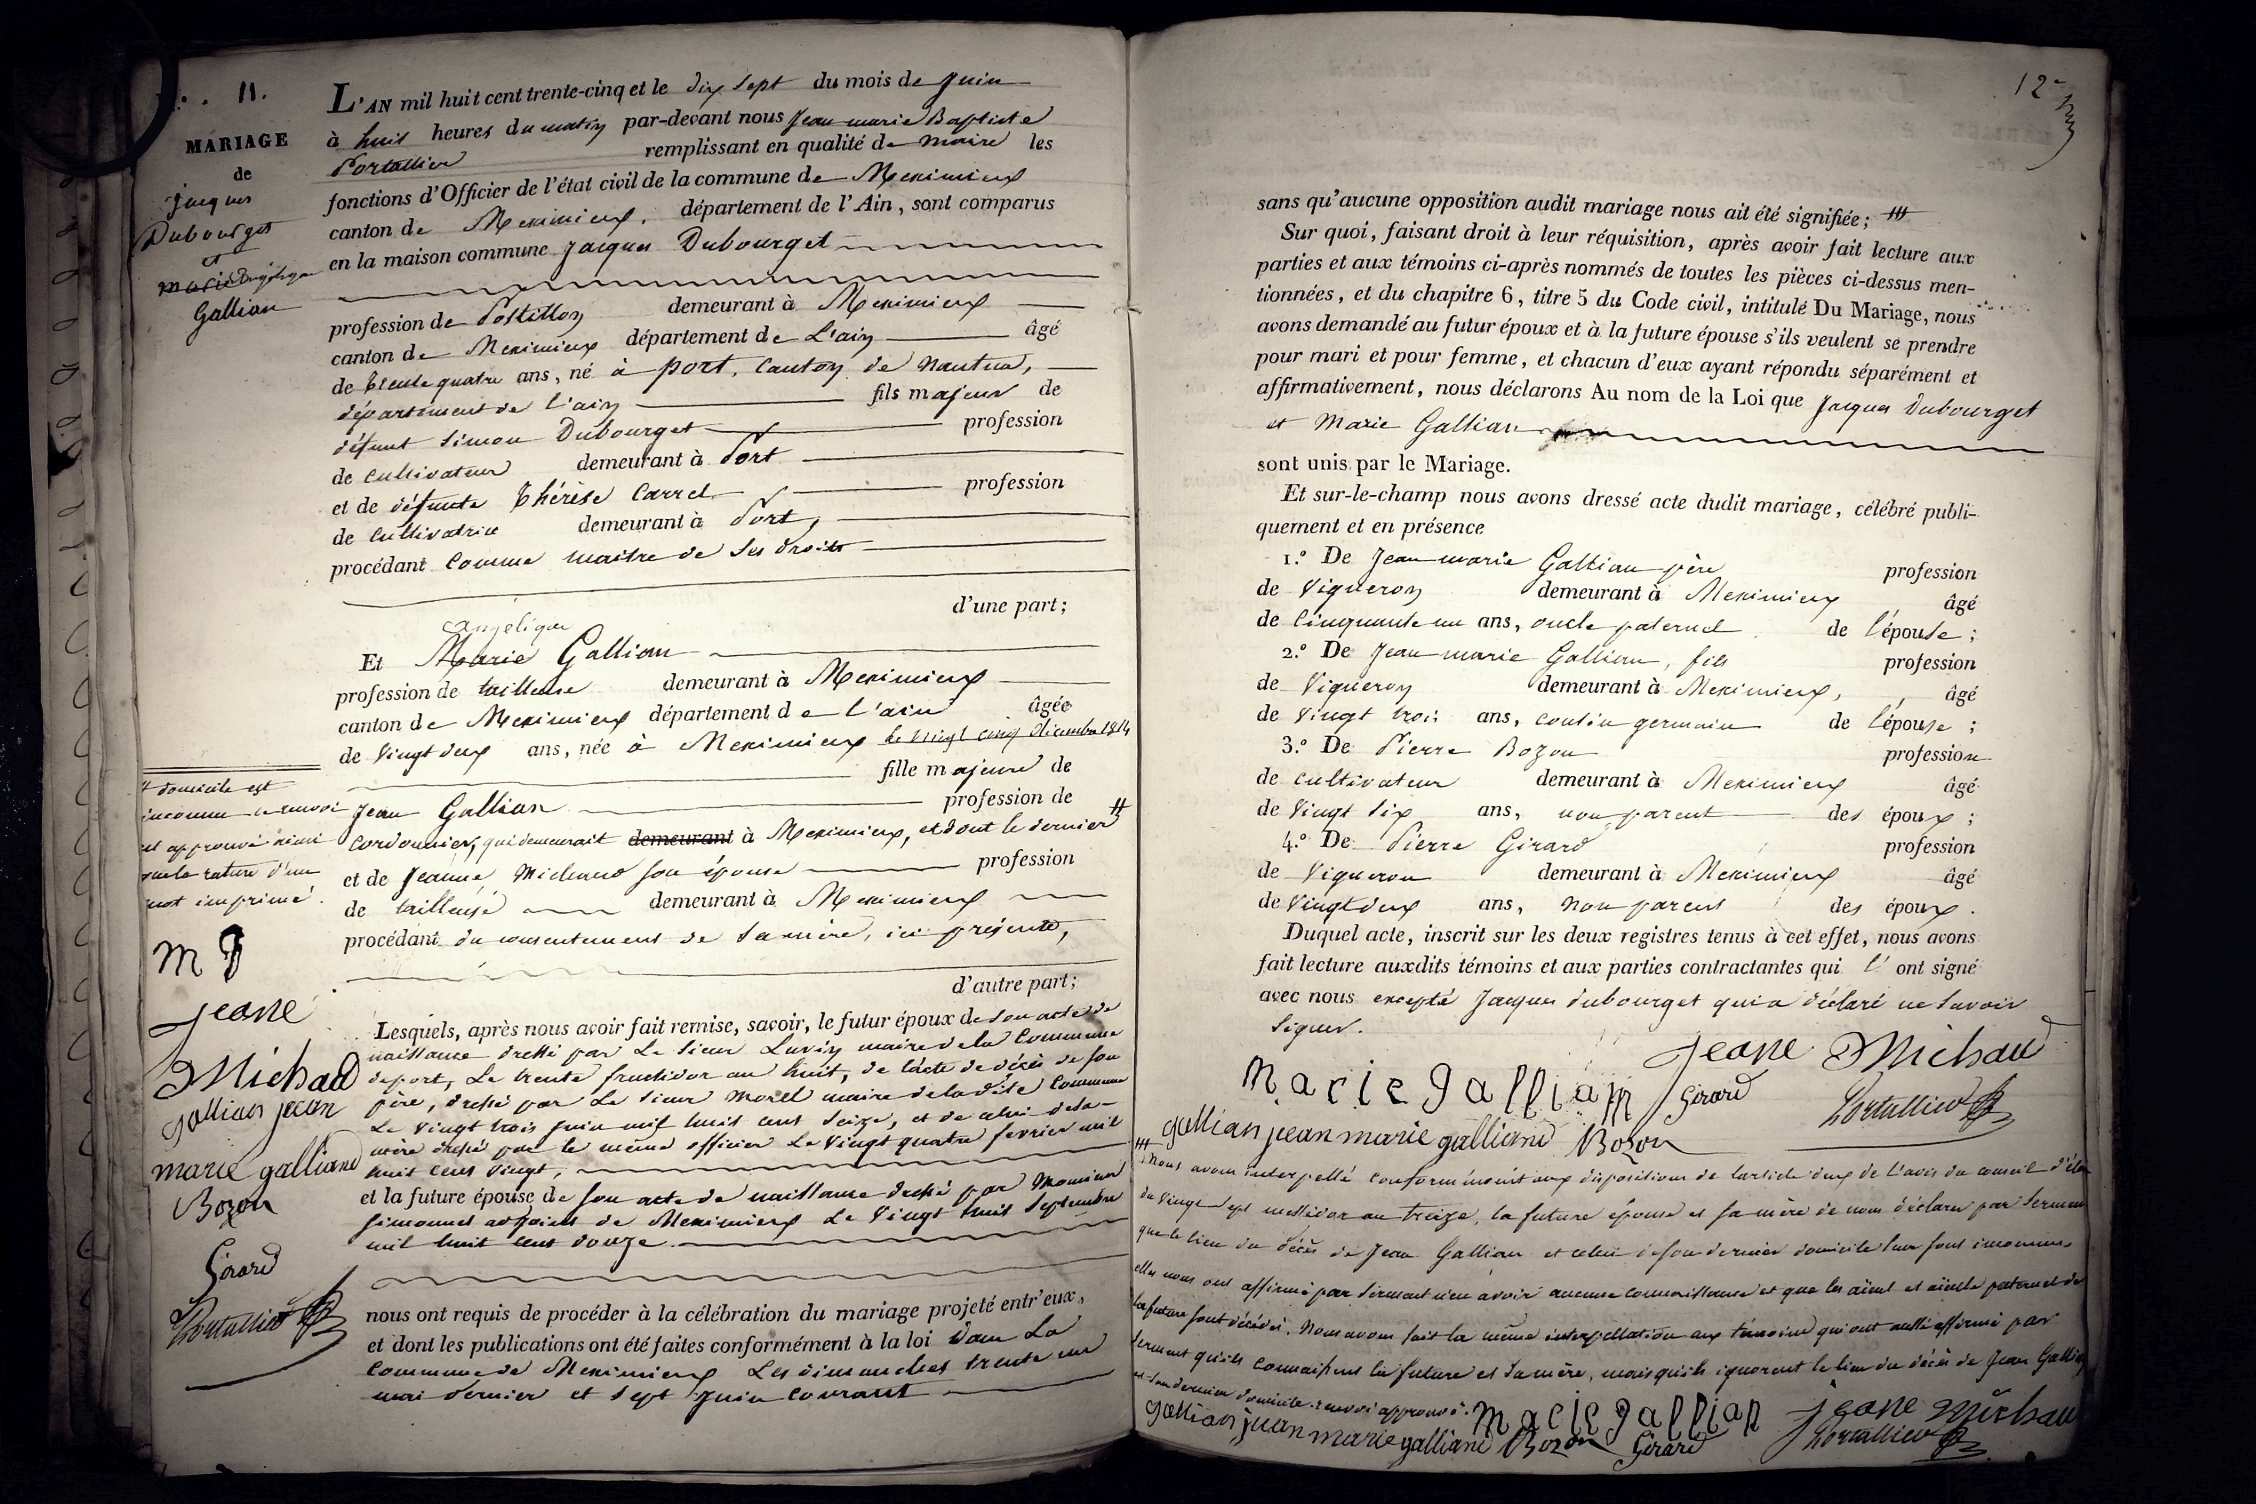 11.
MARIAGE
de
jacques
Dubourget
et
marie Angélique
Gallian
L'AN mil huit cent trente-cinq et le dix sept du mois de juin
à huit heures du matin par-devant nous Jean marie Baptiste
Portallier remplissant en qualité de maire les
fonctions d'Officier de l'état civil de la commune de Meximieux
canton de Meximieux, département de l'Ain, sont comparus
en la maison commune Jacques Dubourget
profession de Postillon demeurant à Meximieux
canton de Meximieux département de L'ain âgé
de trente quatre ans, né à port, canton de nantua,
département de l'ain fils majeur de
défunt Simon Dubourget profession
de cultivateur demeurant à Port
et de défunte Thérèse Carrel profession
de cultivatrice demeurant à Port,
procédant comme maitre de ses droits
d'une part;
angélique
Et Marie Gallian
profession de tailleuse demeurant à Meximieux
canton de Meximieux département de l'ain âgée
de vingt deux ans, née à Meximieux le vingt cinq décembre 1814
fille majeure de
Jean Gallian profession de
cordonnier, qui demeurait demeurant à Meximieux, et dont le dernier #
et de Jeanne Michaud son épouse profession
de tailleuse demeurant à Meximieux
procédant du consentement de sa mère, ici présente,
d'autre part;
# domicile est
inconnu le renvoi
est approuvé ainsi
que la rature d'un
mot imprimé.
Jeane
Michaud
gallian jean
marie galliand
Bozon
Girard
Portallier
Lesquels, après nous avoir fait remise, savoir, le futur époux de son acte de
naissance dressé par Le Sieur Luvin maire de la Commune
de port, Le trente fructidor an huit, de l'acte de décès de son
père, dressé par Le Sieur Morel maire de la dite Commune
Le vingt trois juin mil huit cent seize, et de celui de sa
mère dressé par le même officier Le vingt quatre fevrier mil
huit cent vingt,
et la future épouse de son acte de naissance dressé par Monsieur
Simonnet adjoint de Meximieux Le Vingt huit Septembre
mil huit cent douze.
nous ont requis de procéder à la célébration du mariage projeté entr'eux,
et dont les publications ont été faites conformément à la loi dans La
Commune de Meximieux Les dimanches trente un
mai dernier et sept juin courant
12e
sans qu'aucune opposition audit mariage nous ait été signifiée; ###
Sur quoi, faisant droit à leur réquisition, après avoir fait lecture aux
parties et aux témoins ci-après nommés de toutes les pièces ci-dessus men-
tionnées, et du chapitre 6, titre 5 du Code civil, intitulé Du Mariage, nous
avons demandé au futur époux et à la future épouse s'ils veulent se prendre
pour mari et pour femme, et chacun d'eux ayant répondu séparément et
affirmativement, nous déclarons Au nom de la Loi que Jacques Dubourget
et Marie Gallian
sont unis par le Mariage.
Et sur-le-champ nous avons dressé acte dudit mariage, célébré publi-
quement et en présence
1.º De Jean marie Gallian père profession
de Vigneron demeurant à Meximieux âgé
de cinquante un ans, oncle paternel de l'épouse;
2.º De Jean marie Gallian, fils profession
de Vigneron demeurant à Meximieux, âgé
de vingt trois ans, cousin germain de l'épouse;
3.º De Pierre Bozon profession
de cultivateur demeurant à Meximieux âgé
de vingt six ans, non parent des époux;
4.º De Pierre Girard profession
de Vigneron demeurant à Meximieux âgé
de vingt deux ans, non parent des époux.
Duquel acte, inscrit sur les deux registres tenus à cet effet, nous avons
fait lecture auxdits témoins et aux parties contractantes qui l' ont signé
avec nous excepté Jacques dubourget qui a déclaré ne savoir
signer.
Jeane Michaud
Marie gallian Girard Portallier
gallian jean marie galliand Bozon
### Nous avons interpellé conformément aux dispositions de l'article deux de l'avis du conseil d'état
du vingt sept messidor an treize, la future épouse et sa mère de nous déclarer par serment
que le lieu du décès de Jean Gallian et celui de son dernier domicile leur sont inconnus
elles nous ont affirmé par serment n'en avoir aucune connaissance et que les aïeul et aïeule paternels de
la future sont décédés. Nous avons fait la même interpellation aux témoins qui ont aussi affirmé par
serment qu'ils connaissent la future et sa mère, mais qu'ils ignorent le lieu du décès de Jean Gallian
et son dernier domicile. renvoi approuvé.
Marie gallian Jeane Michaud
gallian jean marie galliand Bozon Girard Portallier